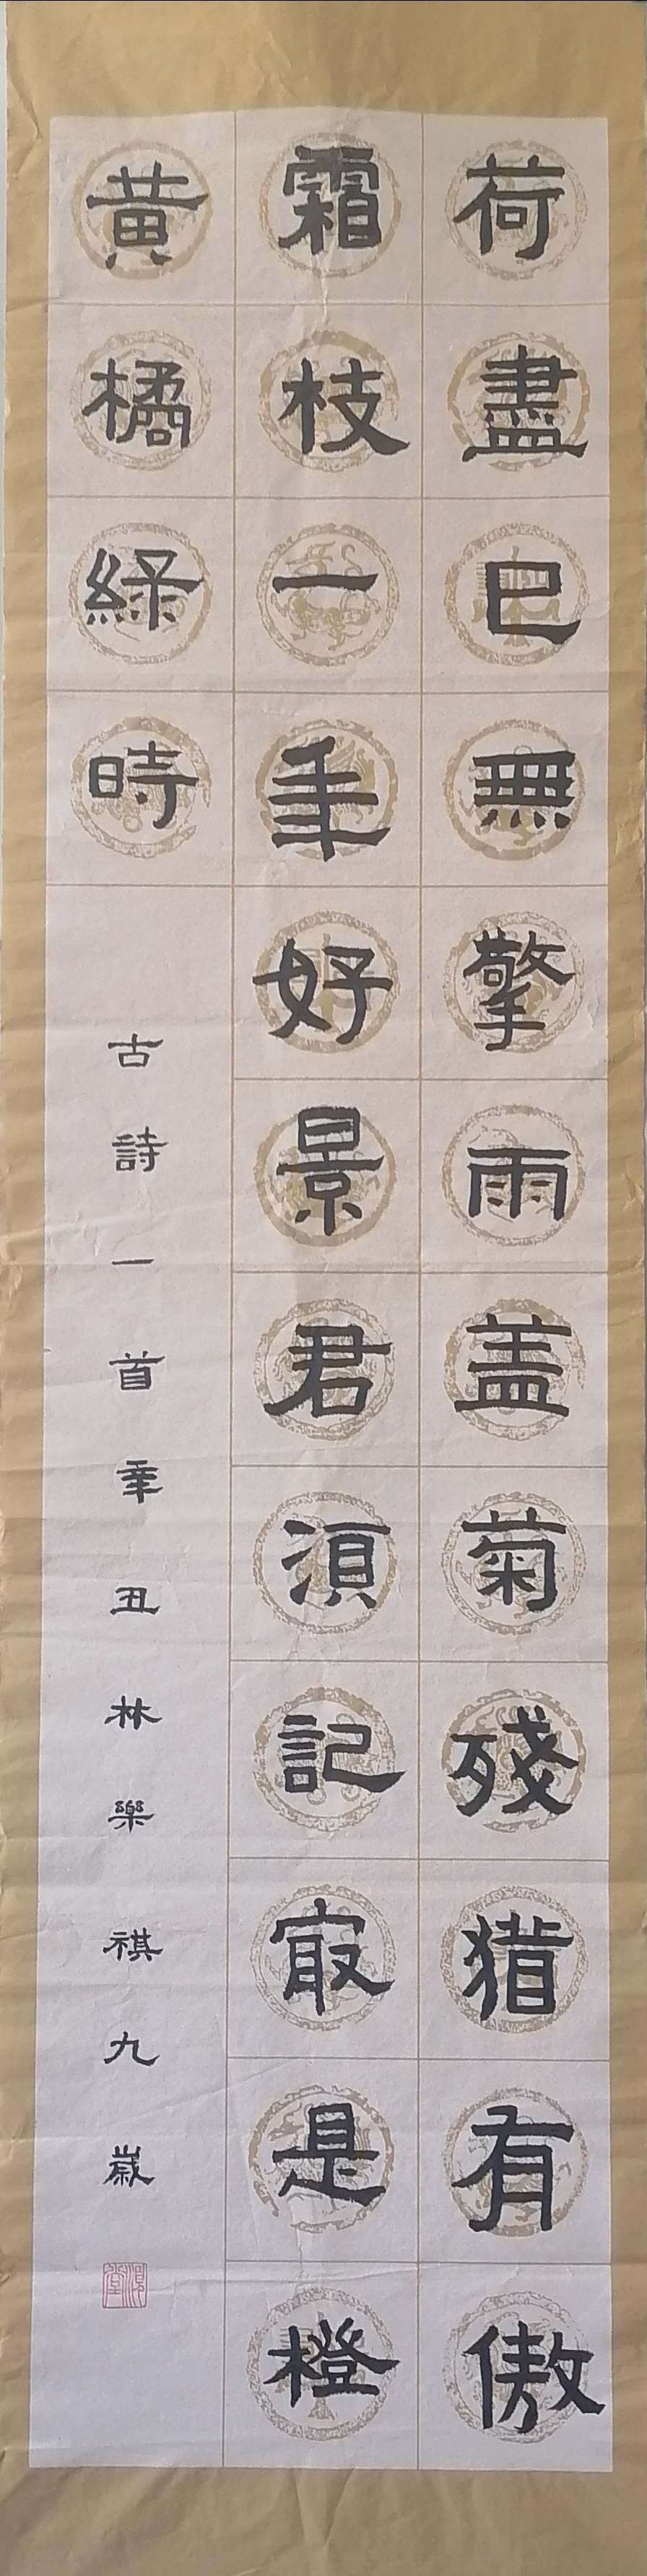 荷盡已無擎雨蓋菊殘猶有傲
霜枝一年好景君須記最是橙
黃橘綠時
古詩一首辛丑林樂祺九歲